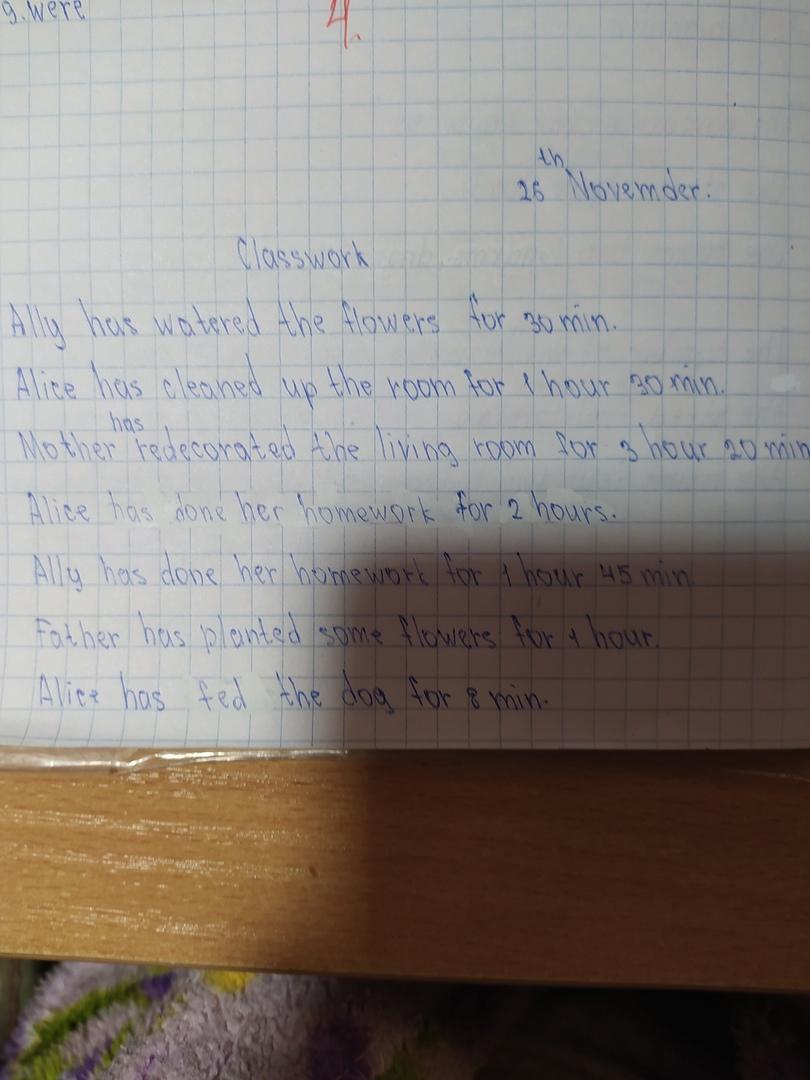 9. were
4.
26th Novemder.
Classwork
Ally has watered the flowers for 30 min.
Alice has cleaned up the room for 1 hour 30 min.
Mother has redecorated the living room for 3 hour 20 min
Alice has done her homework for 2 hours.
Ally has done her homework for 1 hour 45 min
Father has planted some flowers for 1 hour.
Alice has fed the dog for 8 min.